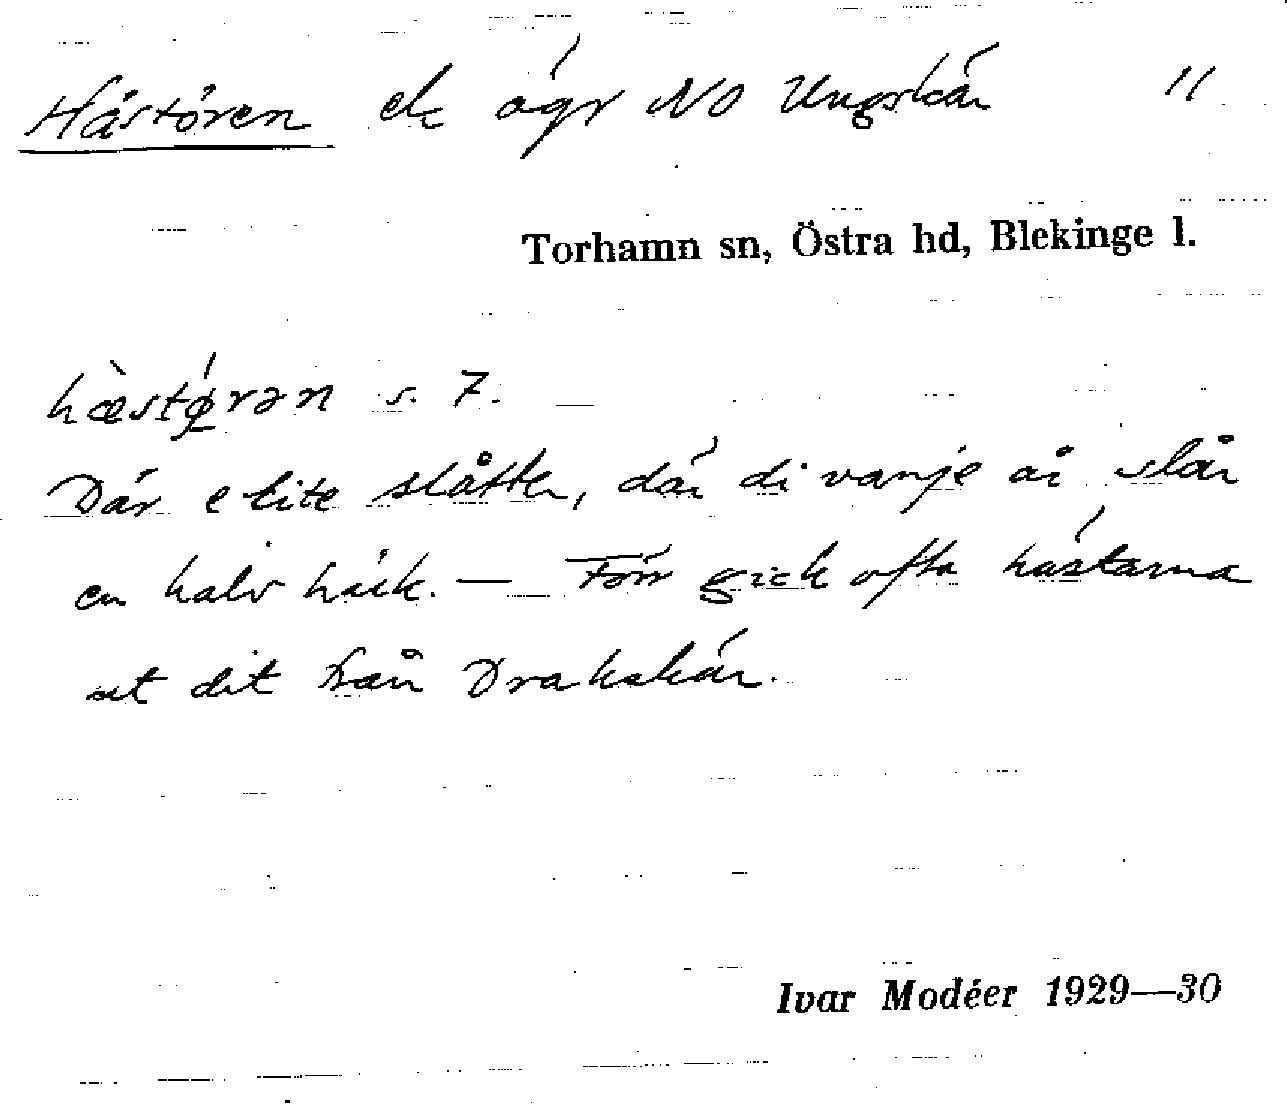 Hästören ek ägr NO Ungskär 11
Torhamn sn, Östra hd, Blekinge l.
hæ̀stǿ̨rən s. 7. —
Där e lite slåtter, där di varje år slår
en halv häck. — Förr gick ofta hästarna
ut dit från Drakskär.
Ivar Modéer 1929—30